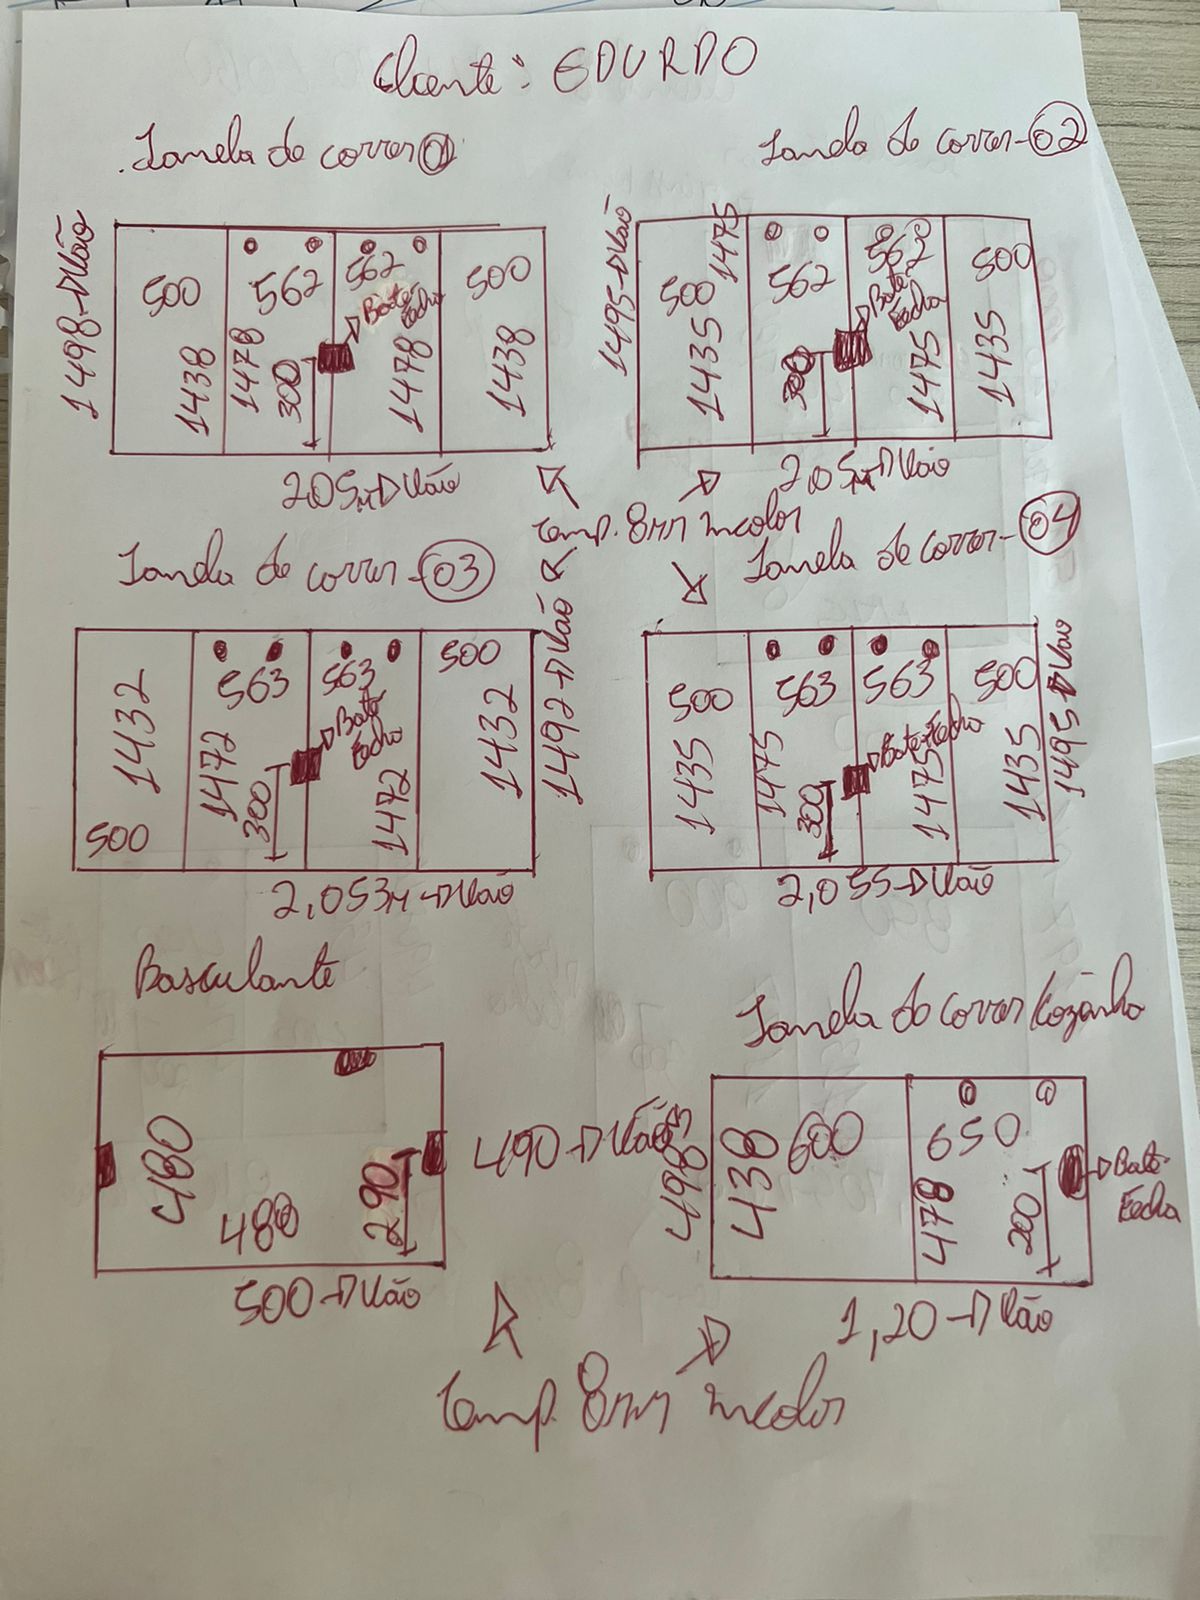 Cliente: EDURDO
Janela de correr 01
Janela de correr-02
1498-DVão
500
562
562
500
Bate
Fecha
1438
1478
300
1478
1438
2,05M-DVão
1495-DVão
1475
500
562
562
500
Bate
Fecha
1435
300
1475
1435
2,05M-DVão
Temp. 8mm incolor
Janela de correr-03
Janela de correr-04
1432
563
563
500
Bate
Fecha
1472
300
1472
1432
500
1492-DVão
2,053M-DVão
500
563
563
500
Bate-Fecha
1435
1475
300
1475
1435
1495-DVão
2,055-DVão
Basculante
Janela de correr Cozinha
480
480
290
490-DVão
500-DVão
498
438
600
650
478
200
Bate-
Fecha
1,20-DVão
Temp. 8mm incolor